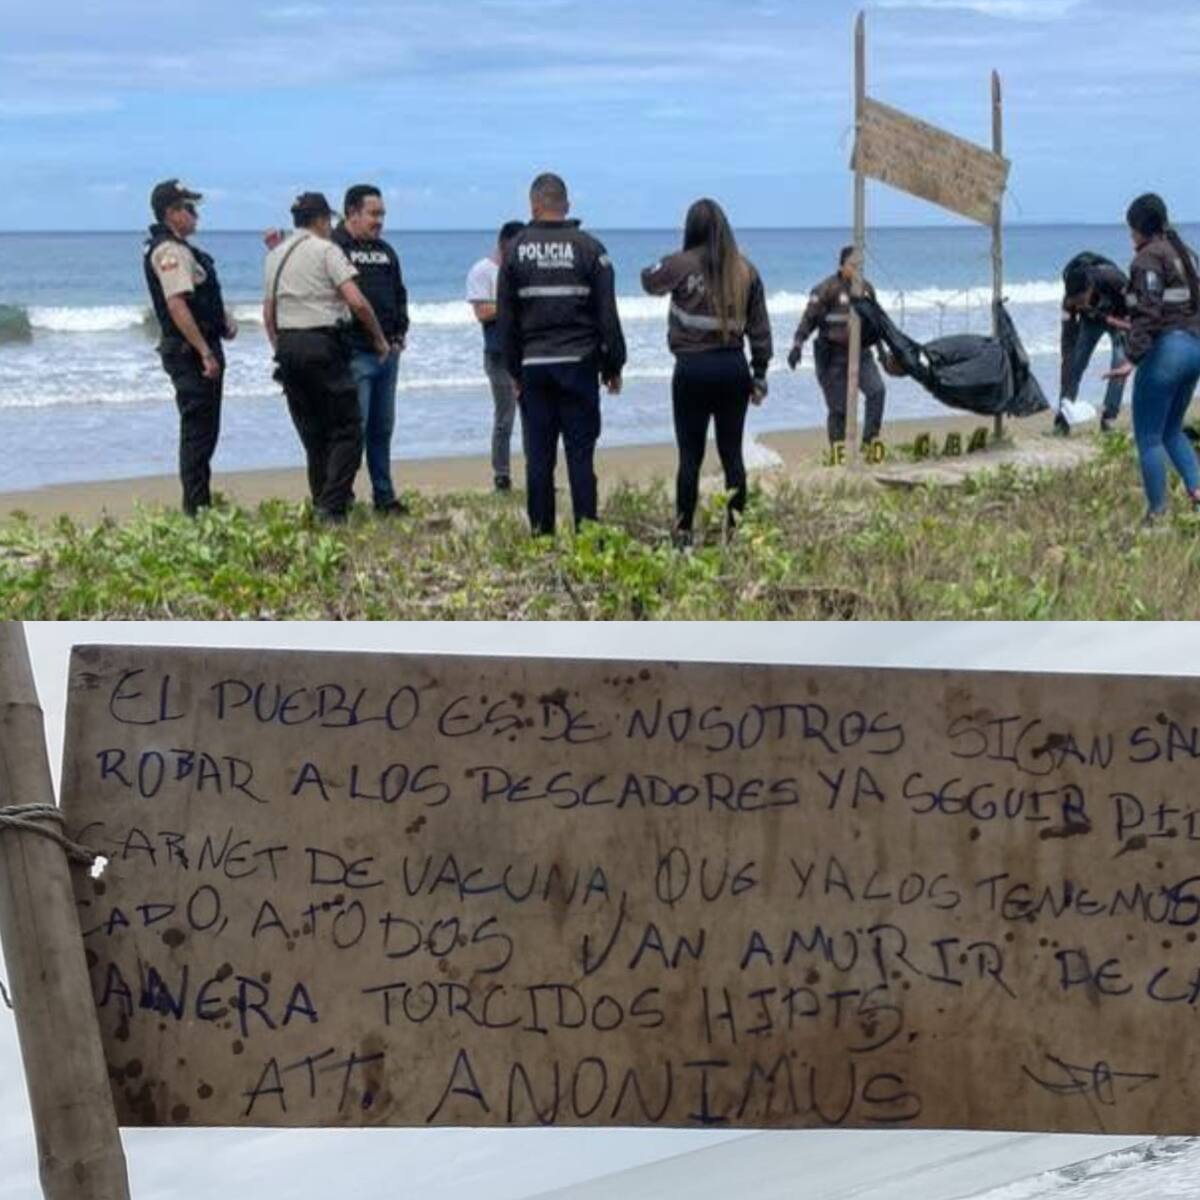 POLICIA
POLICIA
NACIONAL
EL PUEBLO ES DE NOSOTROS SIGAN
ROBAR A LOS PESCADORES YA SEGUIR
CARNET DE VACUNA, QUE YA LOS TENEMOS
CADO, A TODOS VAN A MORIR DE
TORCIDOS
ATT. ANONIMUS